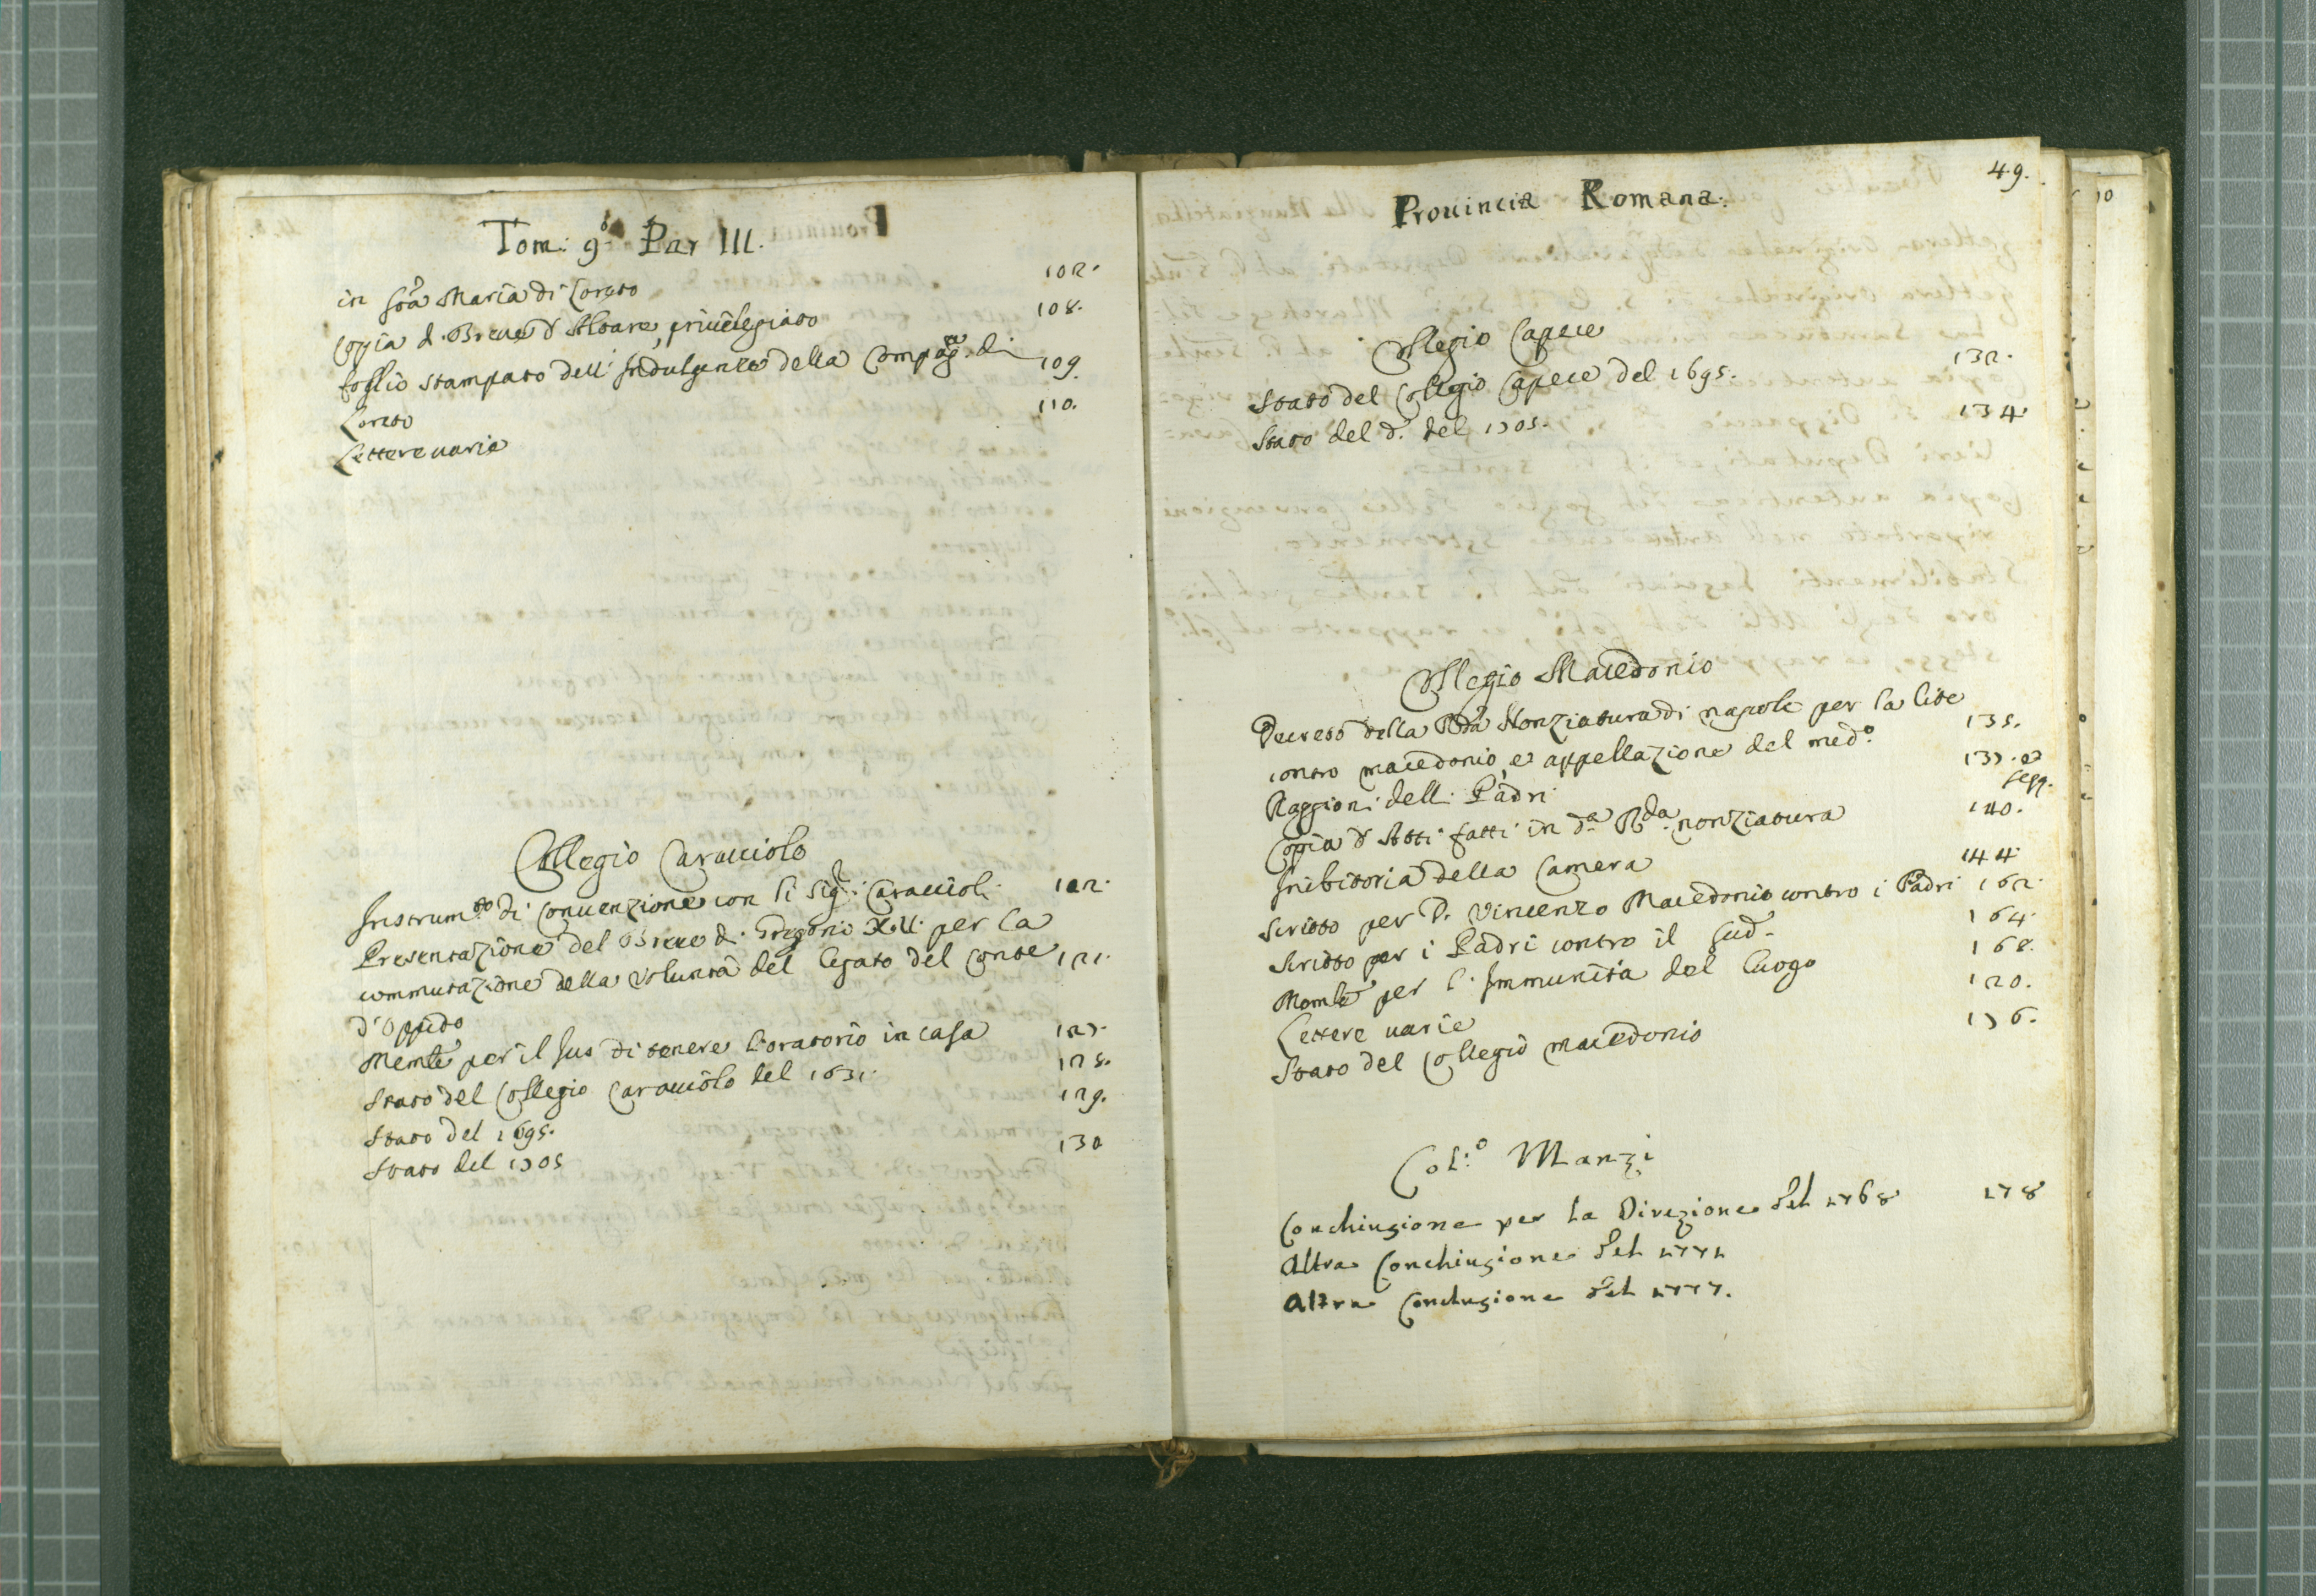 Tom: 9o Par III.
in Sta Maria di Loreto 102.
Copia d. Breve d'Altare privilegiato 108.
foglio stampato dell'Indulgenze della Compag.a di 109.
Loreto
Lettere varie 110.
Collegio Caracciolo
Instrum.to di Convenzione con li Sig.ri Caraccioli 112.
Presentazione del Breve di Gregorio XIII per la
commutazione della Volunta del legato del Conte 121.
d'Oppido
Memle per il Jus di tenere l'oratorio in casa 127.
Stato del Collegio Caracciolo del 1631. 128.
Stato del 1695. 129.
Stato del 1705 130
49.
Provincia Romana.
Collegio Capece
Stato del Collegio Capece del 1695. 132.
Stato del d.o del 1705. 134
Collegio Macedonio
Decreto della Rda Nonziatura di napole per la lite
contro macedonio, e appellazione del med.o 135.
Raggioni delli Padri 137. et segg.
Copia d'Atti fatti in d.a R.da nonziatura 140.
Inibitoria della Camera 144
Scritto per D. Vincenzo Macedonio contro i Padri 162.
Scritto per i Padri contro il Sud.o 164.
Momle per l'Immunita del Luogo 168.
Lettere varie 170.
Stato del Collegio macedonio 176.
Col:o Manzi
Conchiusione per la Direzione del 1768 178
Altra Conchiusione del 1771
Altra Conclusione del 1777.